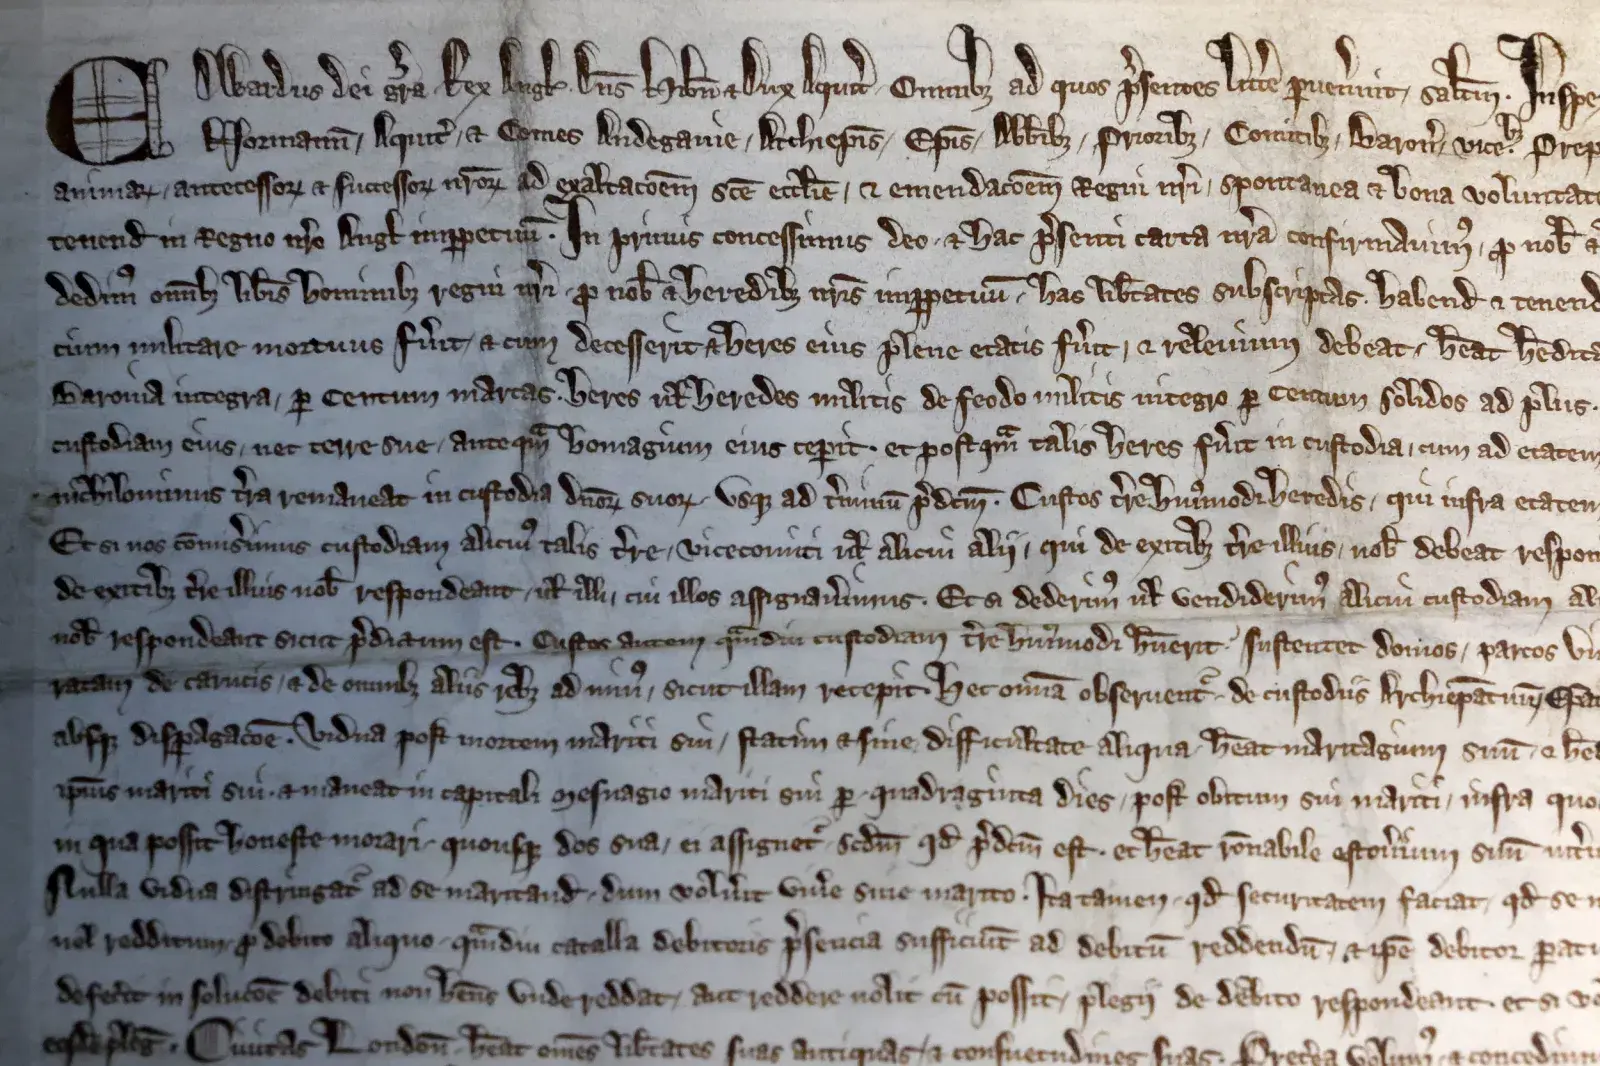 Edwardus dei gra Rex Angl Dns Hibn & Dux Aquit Omnibz ad quos psentes littere puenint saltm. Inspe
Normann, Aquit, & Comes Andegavie, Archiepis, Epis, Abbibz, Prioribz, Comitibz, Baron, vice Prep
animar, antecessor & successor nror ad exaltacoem sce ecclie, & emendacoem Regni nri, spontanea & bona voluntate
tenend in Regno nro Angl imppetuu. In primis concessimus deo & hac psenti carta nra confirmavim, p nob &
dedim omibz libis hominibz regni nri p nob & heredibz nris imppetuu, has libtates subscriptas. habend & tenend
cium militare mortuus fuit, & cum decesserit & heres eius plene etatis fuit, & relevium debeat, heat hedita
Baronia integra, p Centum marcas. heres ul heredes militis de feodo militis integro p Centum solidos ad plus.
custodiam eius, nec terre sue, ante qm homagium eius ceperit. et postqm talis heres fuit in custodia, cum ad etatem
nichilominus tra remaneat in custodia dnor suor, usq ad tminu pdcm. Custos tre humodi heredis, qui infra etatem
Et si nos comisimus custodiam alicui talis tre, vicecomiti ul alicui alii, qui de exitibz tre illius, nob debeat respon
de exitibz tre illius nob respondeant, ul illi, cui illos assignavimus. Et si dederim ul vendiderim alicui custodiam al
nob respondeant sicut pdictum est. Custos autem qmdiu custodiam tre humodi huerit sustentet domos, parcos vi
ratam de carucis, & de omibz aliis rebz ad min, sicut illam recepit. Hec omia observent de custodiis Archiepatuum, Epat
absq dispagacoe. Vidua post mortem mariti sui, statim & sine difficultate aliqua heat maritagium suu & hea
ipius mariti sui. & maneat in capitali mesuagio mariti sui p quadraginta dies, post obitum sui mariti, infra quo
in qua possit honeste morari quousq dos sua, ei assignet scdm qd pdcm est. et heat ronabile estovium suu inti
Nulla vidua distringat ad se maritand, dum voluit vive sine marito. Ita tamen qd securitatem faciat, qd se n
uel redditum p debito aliquo qmdiu catalla debitoris psencia sufficiut ad debitu reddendu, & ipe debitor pati
defecit in solucoe debiti non hens unde reddat, aut reddere nolit cu possit, plegii de debito respondeant. et si vo
eosde pleg. Civitas London heat omes libtates suas antiquas, & consuetudines suas. Pretea volum & concedim